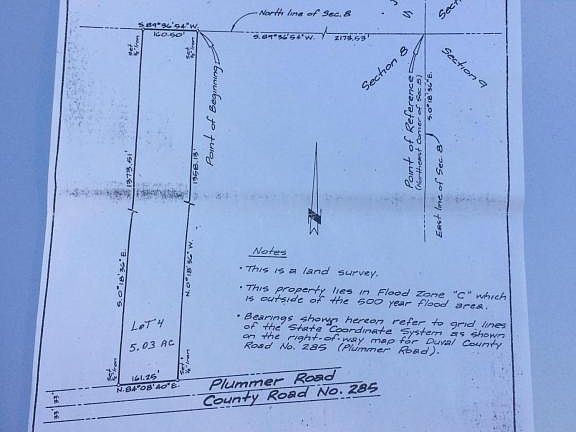 North line of Sec. 8
S.89°36'54"W.
160.50'
S.89°36'54"W. 2173.53'
Set ½" Iron
Set ½" Iron
Point of Beginning
Section 8
Section 9
Point of Reference
(Northeast Corner of Sec. 8)
S.0°18'36"E.
East line of Sec. 8
1373.61'
1358.13'
S.0°18'36"E.
N.0°18'36"W.
LOT 4
5.03 AC
Notes
• This is a land survey.
• This property lies in Flood Zone "C" which
is outside of the 500 year flood area.
• Bearings shown hereon refer to grid lines
of the State Coordinate System as shown
on the right-of-way map for Duval County
Road No. 285 (Plummer Road).
161.25'
N.84°08'40"E.
Plummer Road
County Road No. 285
33'
33'